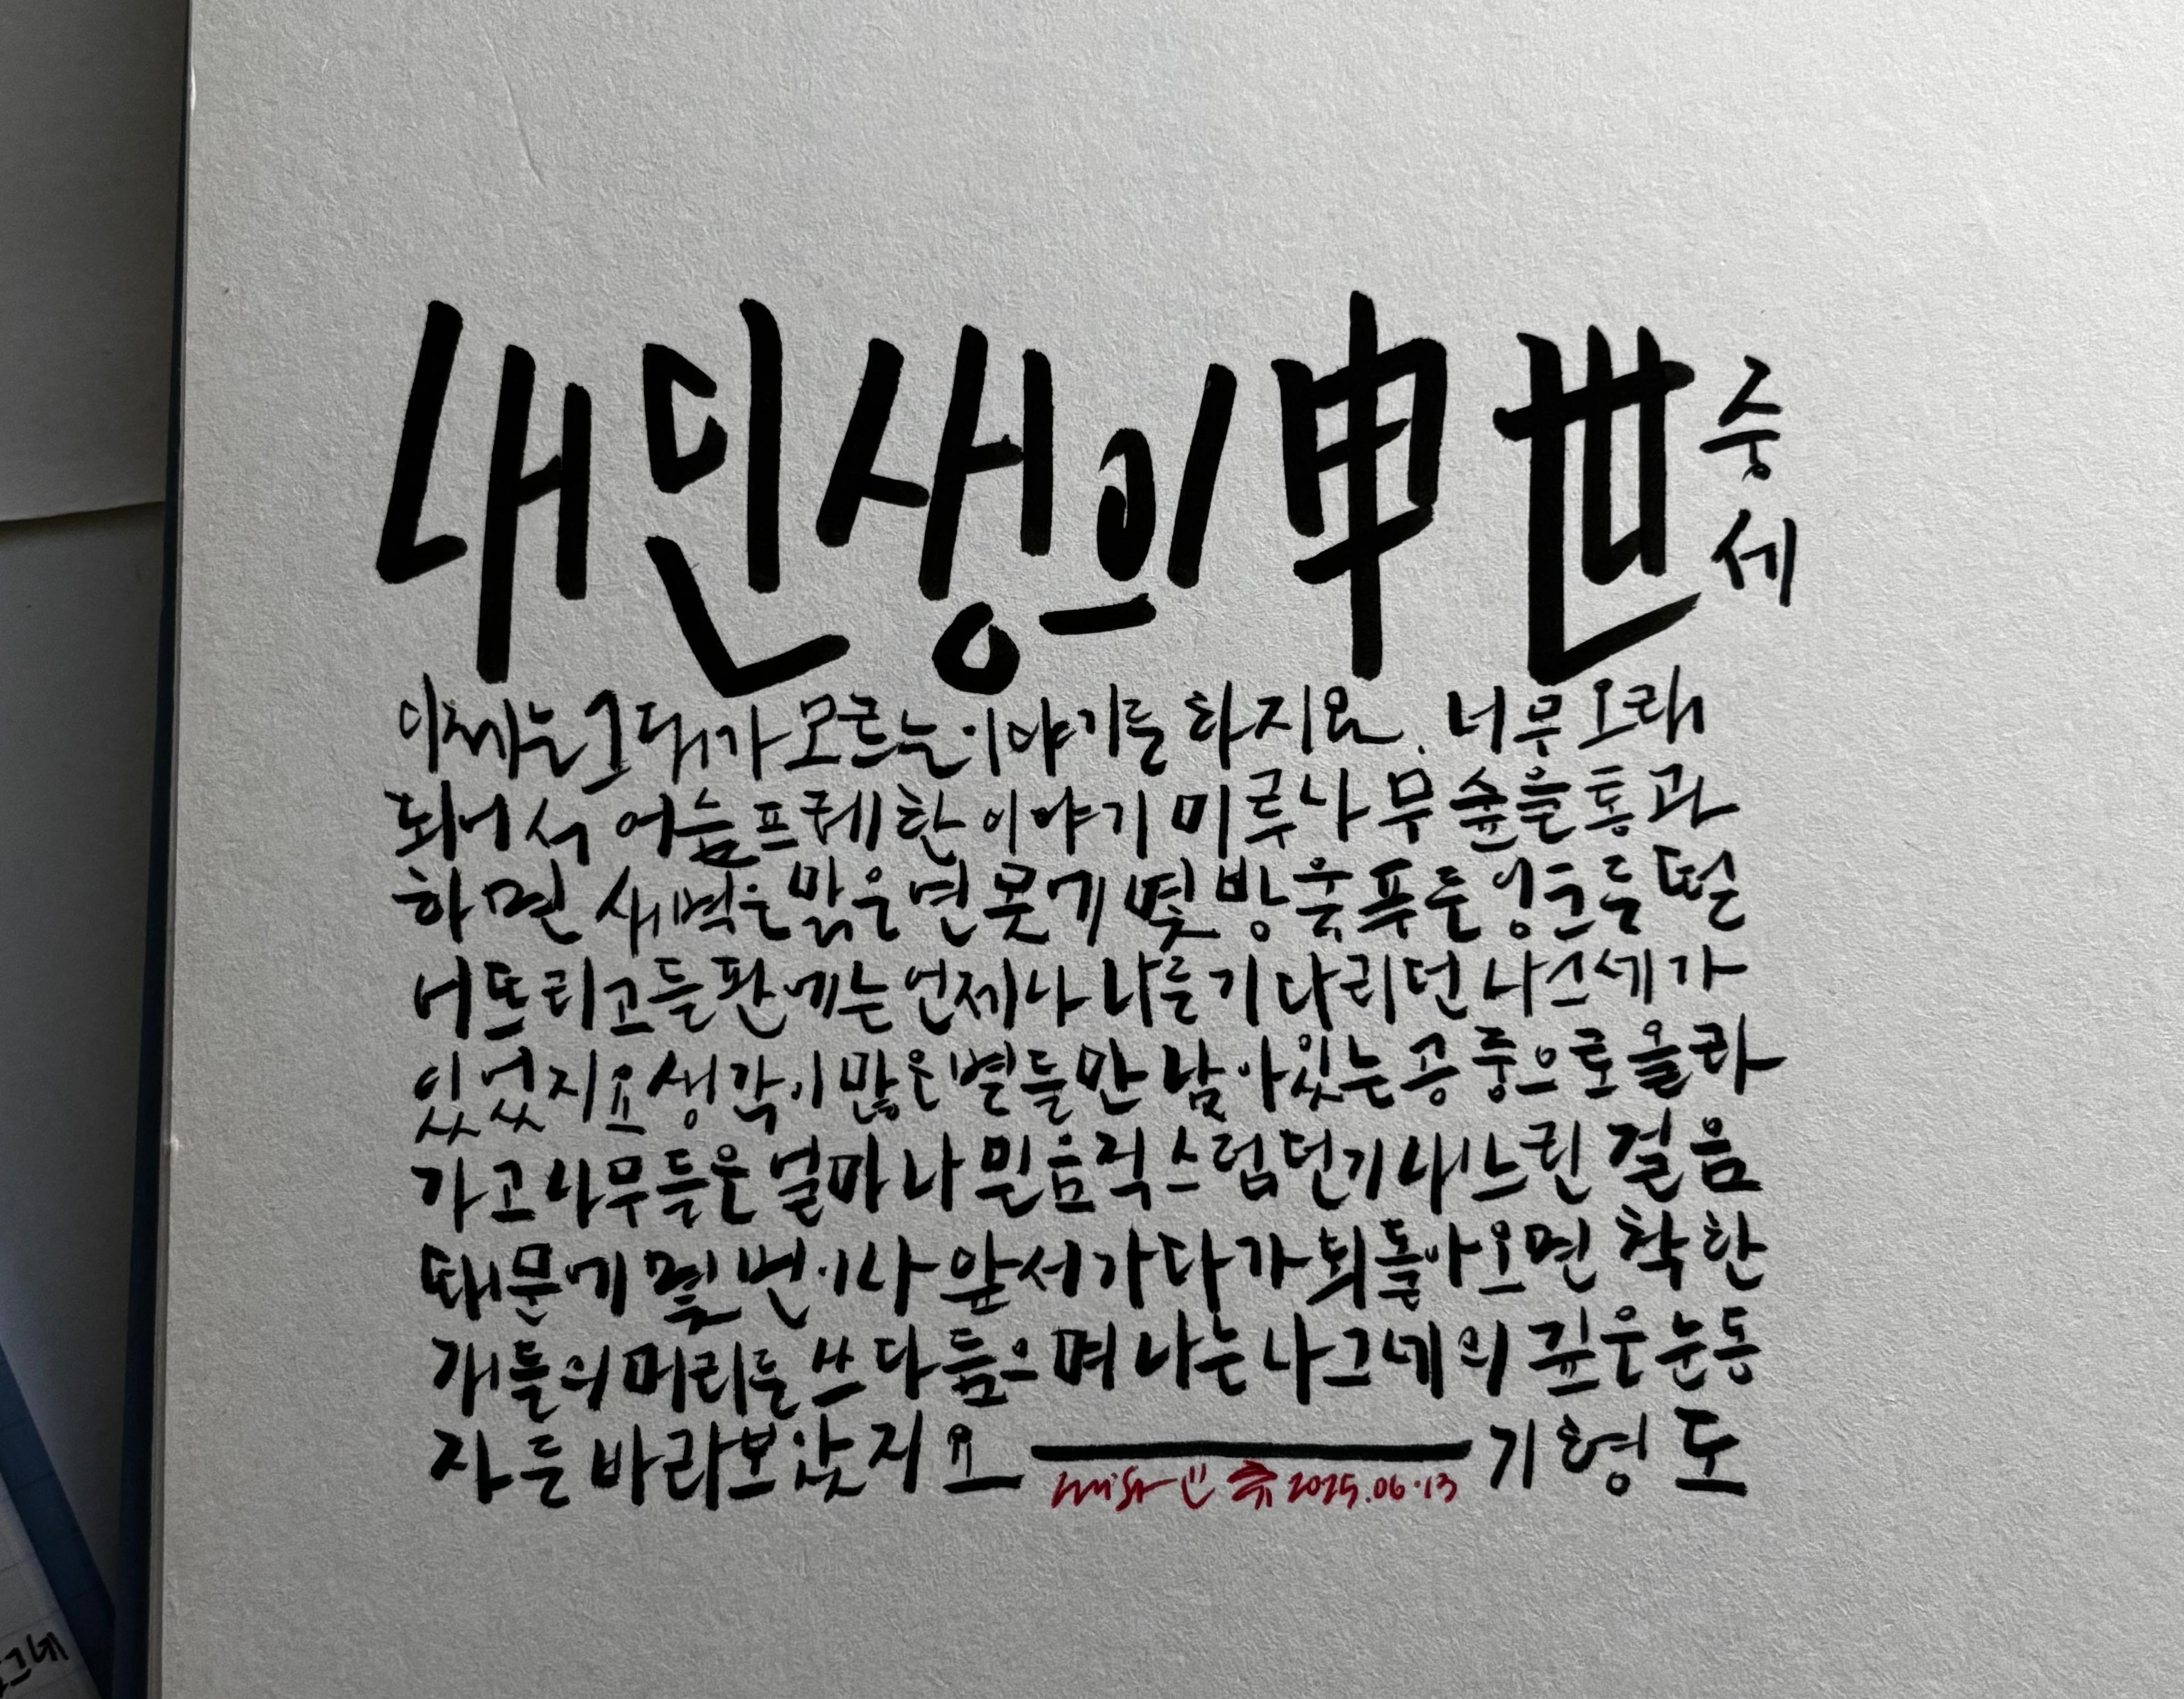 내 인생의 中世 중세
이제는 그대가 모르는 이야기를 하지요. 너무 오래
되어서 어슴프레한 이야기 미루나무 숲을 통과
하면 새벽은 맑은 연못에 몇 방울 푸른 잉크를 떨
어뜨리고 들판에는 언제나 나를 기다리던 나그네가
있었지요 생각이 많은 별들만 남아있는 공중으로 올라
가고 나무들은 얼마나 믿음직스럽던지 내 느린 걸음
때문에 몇번이나 앞서가다가 되돌아오면 착한
개들의 머리를 쓰다듬으며 나는 나그네의 깊은 눈동
자를 바라보았지요 기형도
2025.06.13
그네